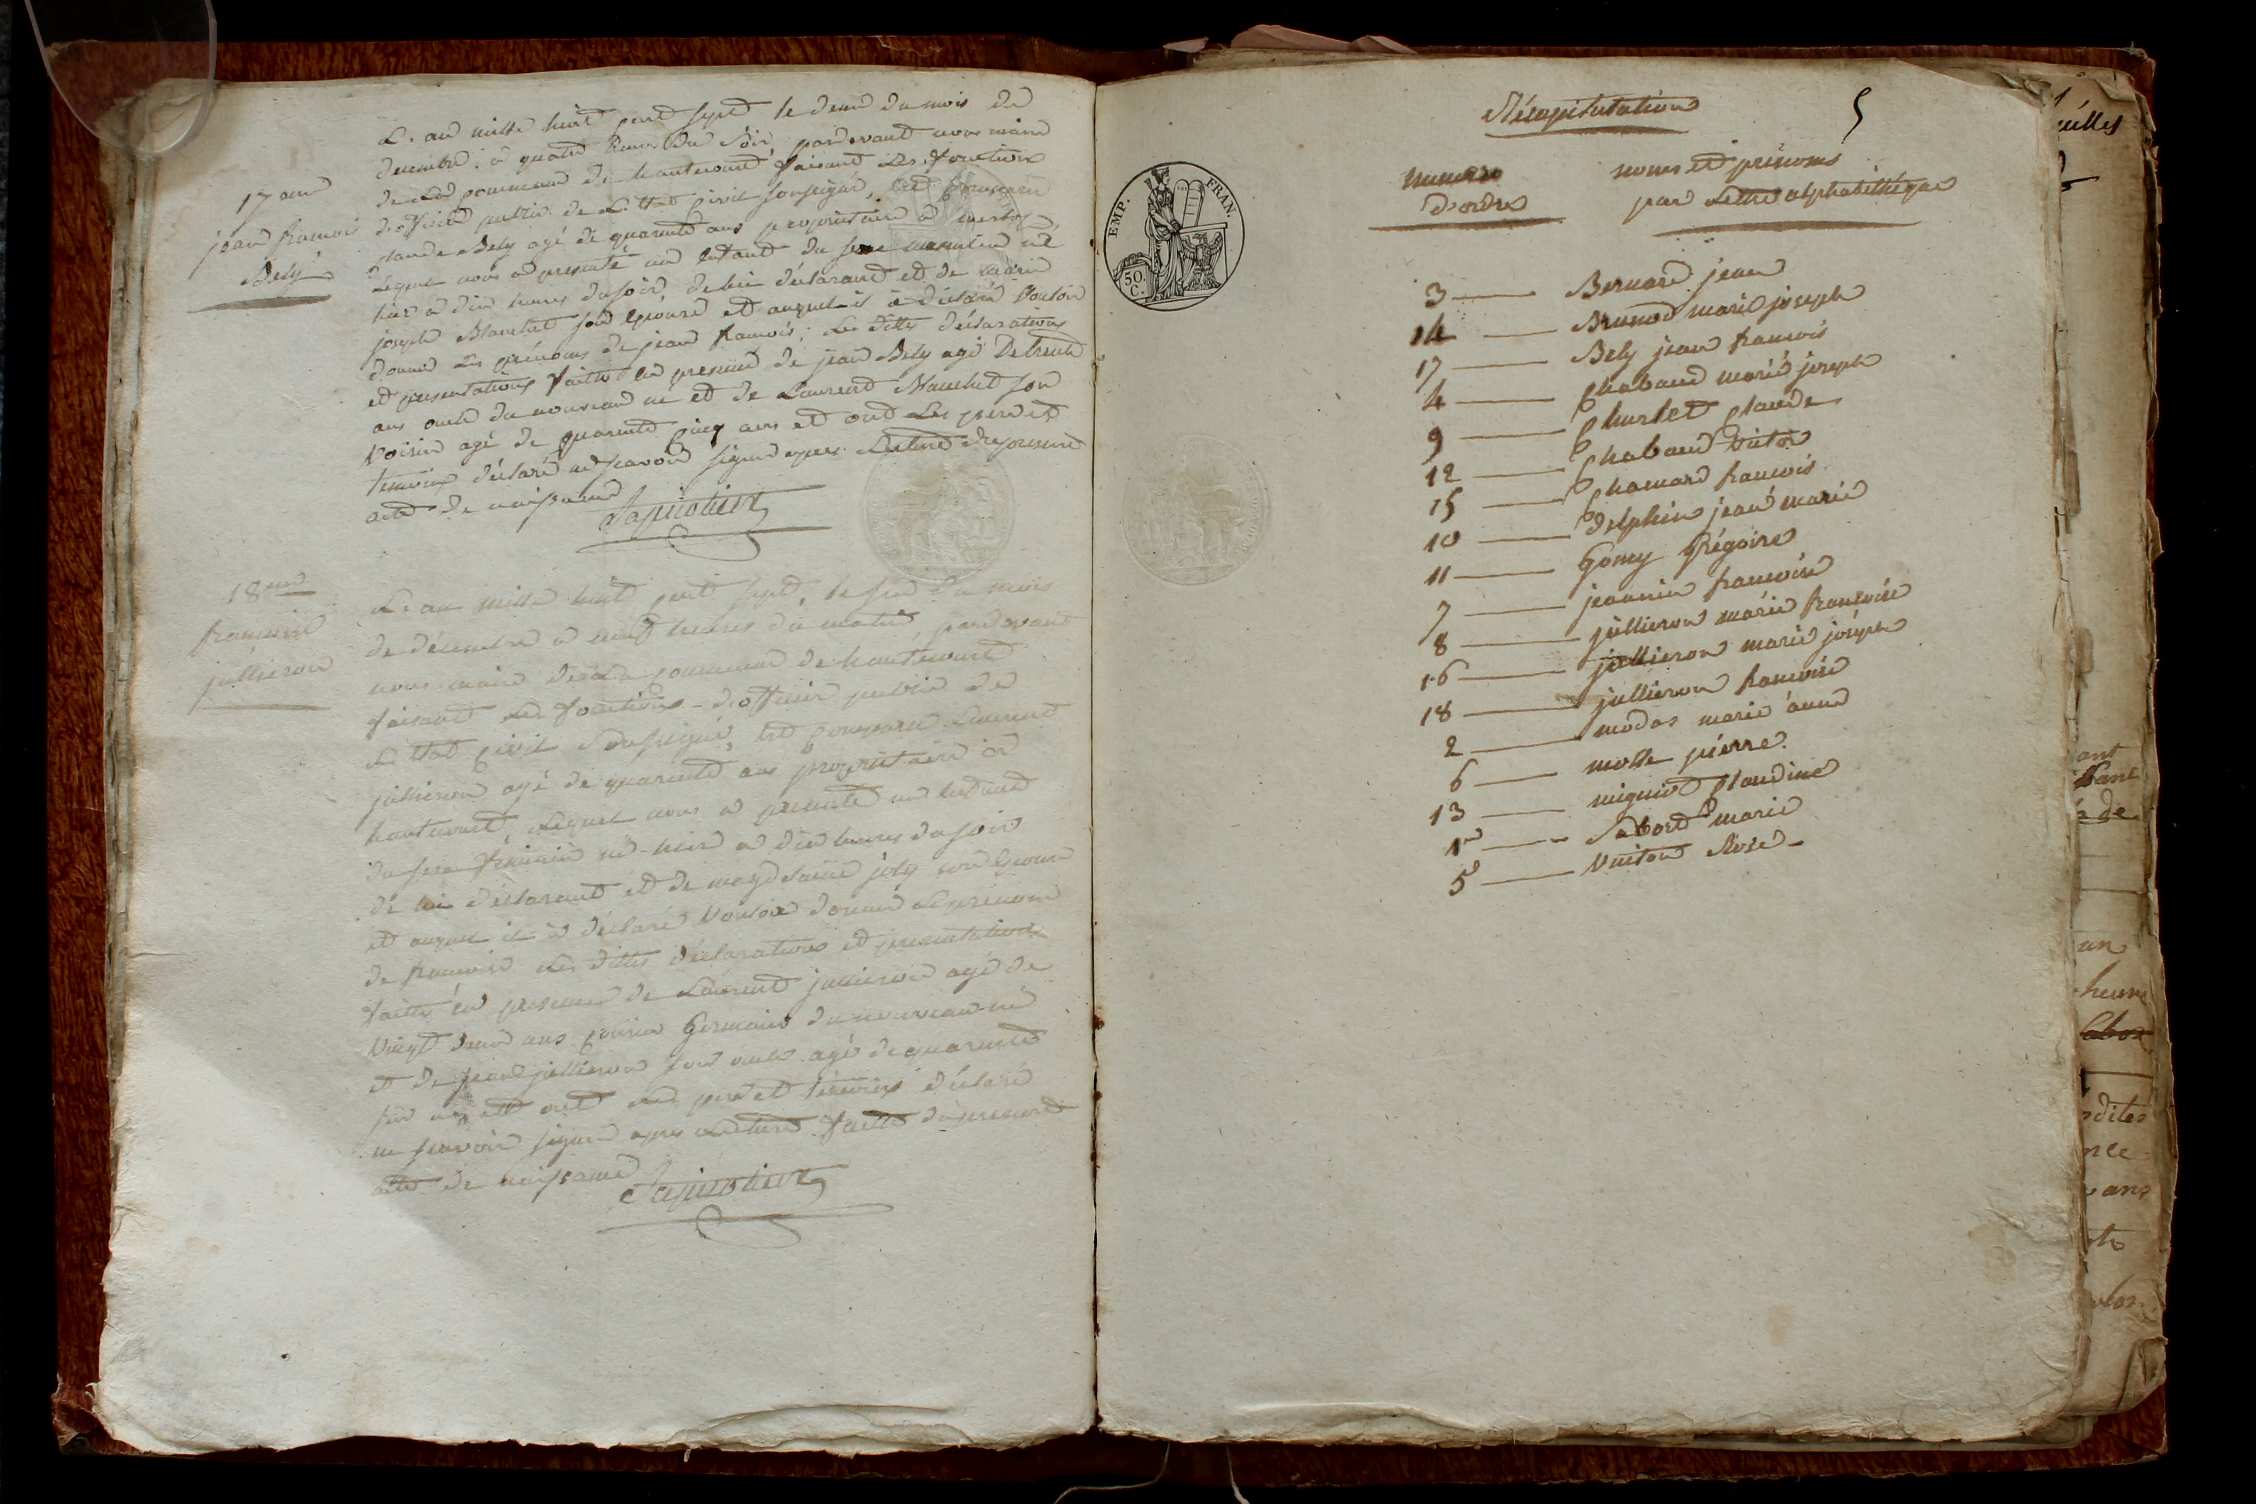 17 eme
jean francois
Bely
L'an mille huit cent sept le deux du mois de
decembre à quatre heures du soir, pardevant nous maire
de la commune de hautecourt faisant les fonctions
d'officier public de l'Etat civil soussigné, est comparu
claude Bely agé de quarante ans propriétaire à
Lequel nous a presenté un Enfant du sexe masculin né
hier à dix heures du soir de lui déclarant et de marie
joseph Blanchet son Epouse et auquel il a déclaré vouloir
donner les prénoms de jean francois; les dittes déclarations
et presentations faittes en presence de jean Bely agé de trente
ans oncle du nouveau né et de Laurent Blanchet son
voisin agé de quarante cinq ans et ont les pere et
temoins déclaré ne scavoir signer apres Lecture du present
acte de naissance
18 eme
francoise
jullieron
L'an mille huit cent sept, le six du mois
de décembre à neuf heures du matin, pardevant
nous maire de la commune de hautecourt
faisant les fonctions d'officier public de
L'Etat civil soussigné, est comparu Laurent
jullieron agé de quarante ans propriétaire à
hautecourt, Lequel nous a presenté un Enfant
du sexe féminin né hier à dix heures du soir
de lui déclarant et de joly son Epouse
et auquel il a déclaré vouloir donner le prénom
de francoise les dittes déclarations et presentations
faittes en presence de Laurent jullieron agé de
vingt deux ans cousin Germain du nouveau né
et de jullieron son oncle agé de quarante
six ans et ont les pere et témoins déclaré
ne scavoir signer apres Lecture faitte du present
acte de naissance
Récapitulation
5
numero
d'ordre
noms et prénoms
par Lettre alphabethique
EMP. FRAN.
50. C.
3 Bernard jean
14 Brunod marie joseph
17 Bely jean francois
4 Chabaud marie joseph
9 Charlet Claude
12 Chabaud victor
15 Chamard francois
10 delphin jean marie
11 Gomy Grégoire
7 jeannin francoise
8 jullieron marie francoise
16 jullieron marie joseph
18 jullieron francoise
2 modas marie anne
6 molle pierre
13 mignot Claudine
1er Sabord marie
5 Vuiton Rose